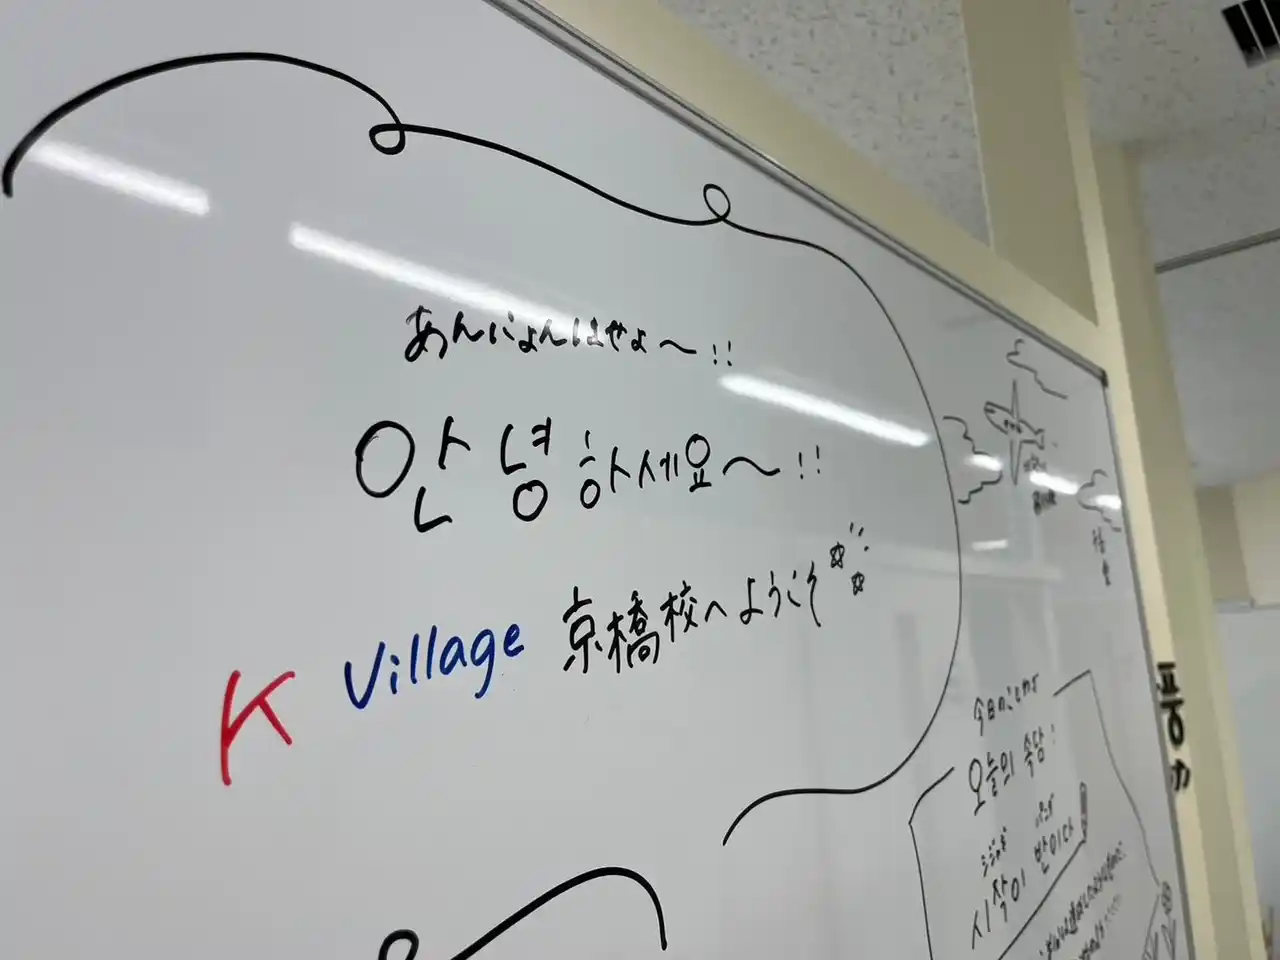 あんにょんはせよ〜!!
안녕하세요〜!!
K Village 京橋校へようこそ
今日のことわざ
오늘의 속담:
시작이 반이다